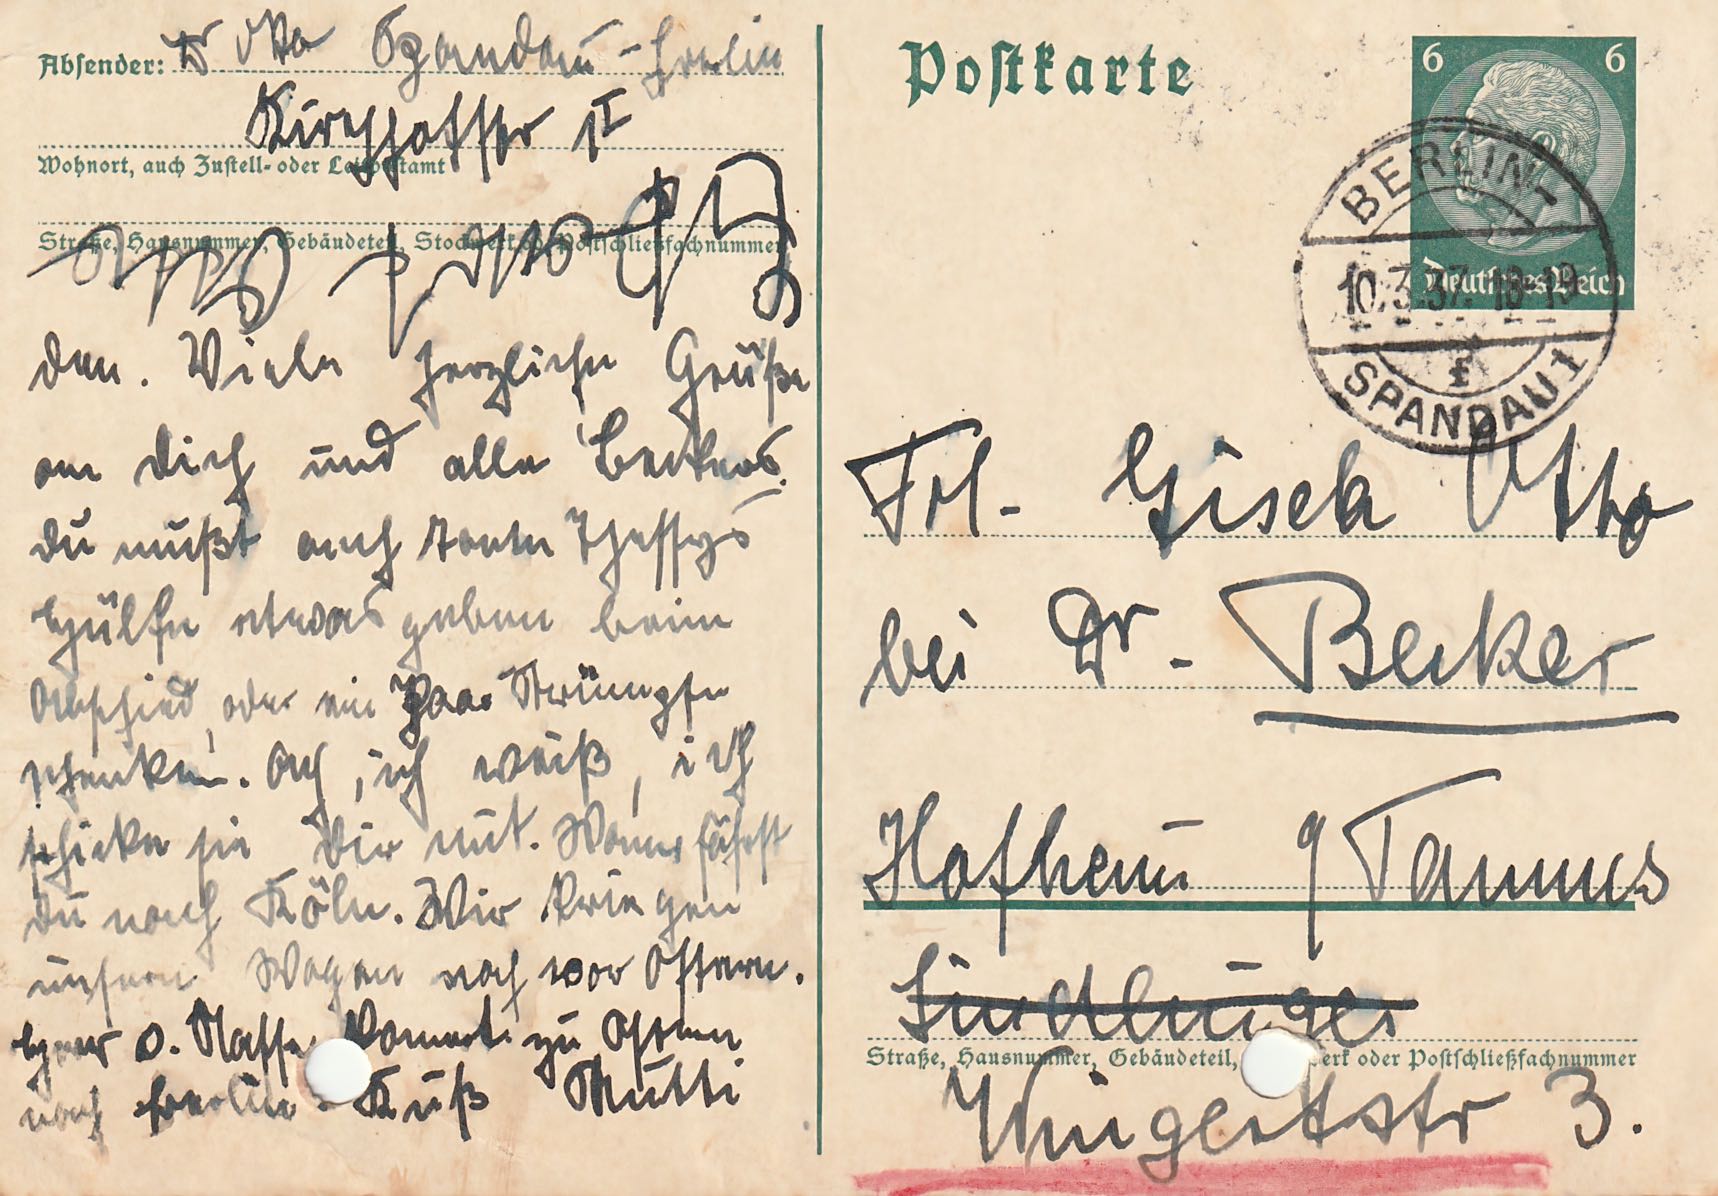 Absender: Dr Otto Spandau-Berlin
Kirchhofstr 1 I
Wohnort, auch Zustell- oder Leitpostamt
Straße, Hausnummer, Gebäudeteil, Stockwerk od. Postschließfachnummer
den. Viele herzliche Grüße
an dich und alle Beckers.
du mußt auch tante Thessys
hülfe etwas geben beim
Abschied, oder ein Paar Strümpfe
schenken. Ach, ich weiß, ich
schicke sie Dir mit. Wann fährst
du nach Köln. Wir kriegen
unsern Wagen noch vor Ostern.
Herr o. Kommt zu Ostern
nach Berlin. Kuß Mutti
Postkarte
6 6
Deutsches Reich
BERLIN
10.3.37. 18-19
f
SPANDAU 1
Frl. Gisela Otto
bei Dr. Becker
Hofheim / Taunus
Sindlinger
Straße, Hausnummer, Gebäudeteil, Stockwerk oder Postschließfachnummer
Wingertstr 3.